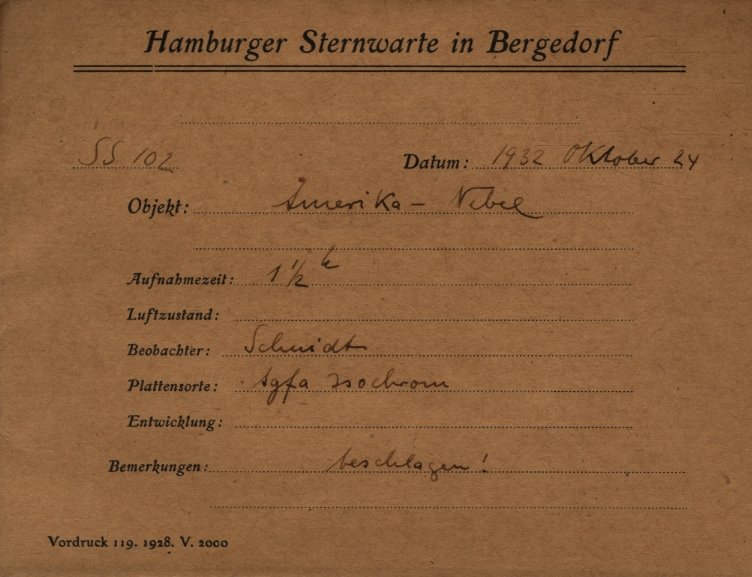 Hamburger Sternwarte in Bergedorf
SS 102 Datum: 1932 Oktober 24
Objekt: Amerika - Nebel
Aufnahmezeit: 1 1/2 h
Luftzustand:
Beobachter: Schmidt
Plattensorte: Agfa Isochrom
Entwicklung:
Bemerkungen: beschlagen!
Vordruck 119. 1928. V. 2000